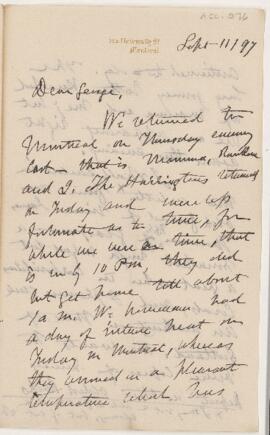 ACC. 976
Montreal
Sept 11/97
Dear George,
We returned to
Montreal on Thursday evening
last - that is Mamma, Rankine
and I. The Harringtons returned
on Friday and were less
fortunate as to time, for
while we were on time, that
is in by 10 P.M., they did
not get home till about
1 a.m. We however had
a day of intense heat on
Friday in Montreal, whereas
they arrived in a pleasant
temperature